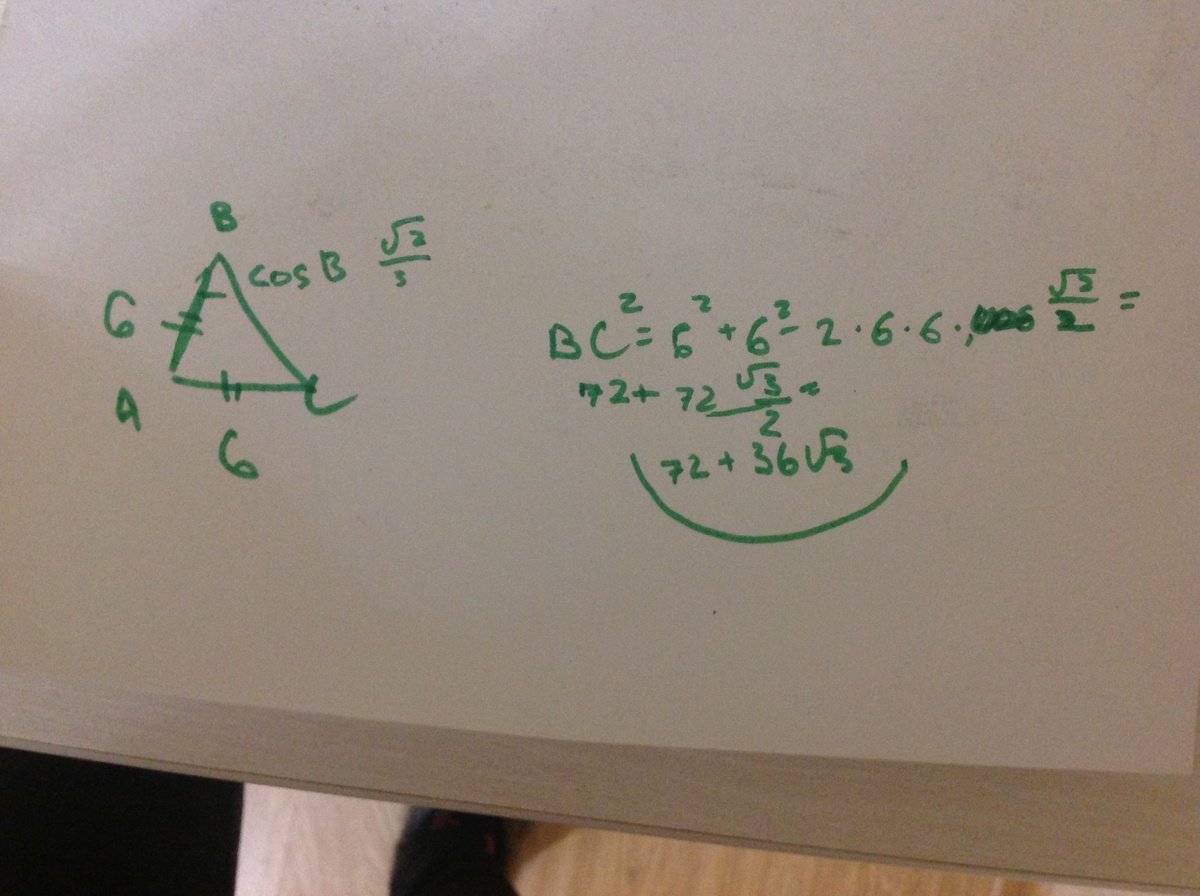 B
cos B √2/3
6
A
C
6
BC² = 6² + 6² - 2 · 6 · 6 · √3/2 =
72 + 72 √3/2 =
72 + 36√3